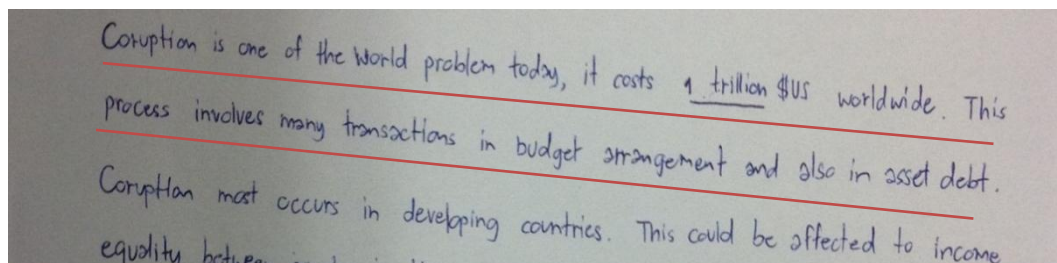 Coruption is one of the World problem today, it costs 1 trillion $US worldwide. This
process involves many transactions in budget arrangement and also in asset debt.
Coruption most occurs in developing countries. This could be affected to income
equality between